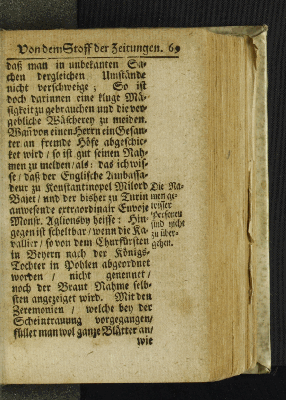 Von dem Stoff der Zeitungen. 69
daß man in unbekanten Sa-
chen dergleichen Umstände
nicht verschweige; So ist
doch darinnen eine kluge Mä-
sigkeit zu gebrauchen und die ver-
gebliche Wäscherey zu meiden.
Wañ von einen Herrn ein Gesan-
ter an fremde Höfe abgeschic-
ket wird / so ist gut seinen Nah-
men zu melden / als: das ich wis-
se / daß der Englische Ambassa-
deur zu Konstantinopel Milord
Pajet / und der bisher zu Turin
anwesende extraordinair Envoje
Monsr. Agliensby heisse: Hin-
gegen ist scheltbar / wenn die Ka-
vallier / so von dem Churfürsten
in Beyern nach der Königs-
Tochter in Pohlen abgeordnet
worden / nicht genennet /
noch der Braut Nahme selb-
sten angezeiget wird. Mit den
Zeremonien / welche bey der
Scheintrauung vorgegangen /
füllet man wol ganze Blätter an /
wie
Die Na-
men ge-
wisser
Personen
sind nicht
zu über-
gehen.